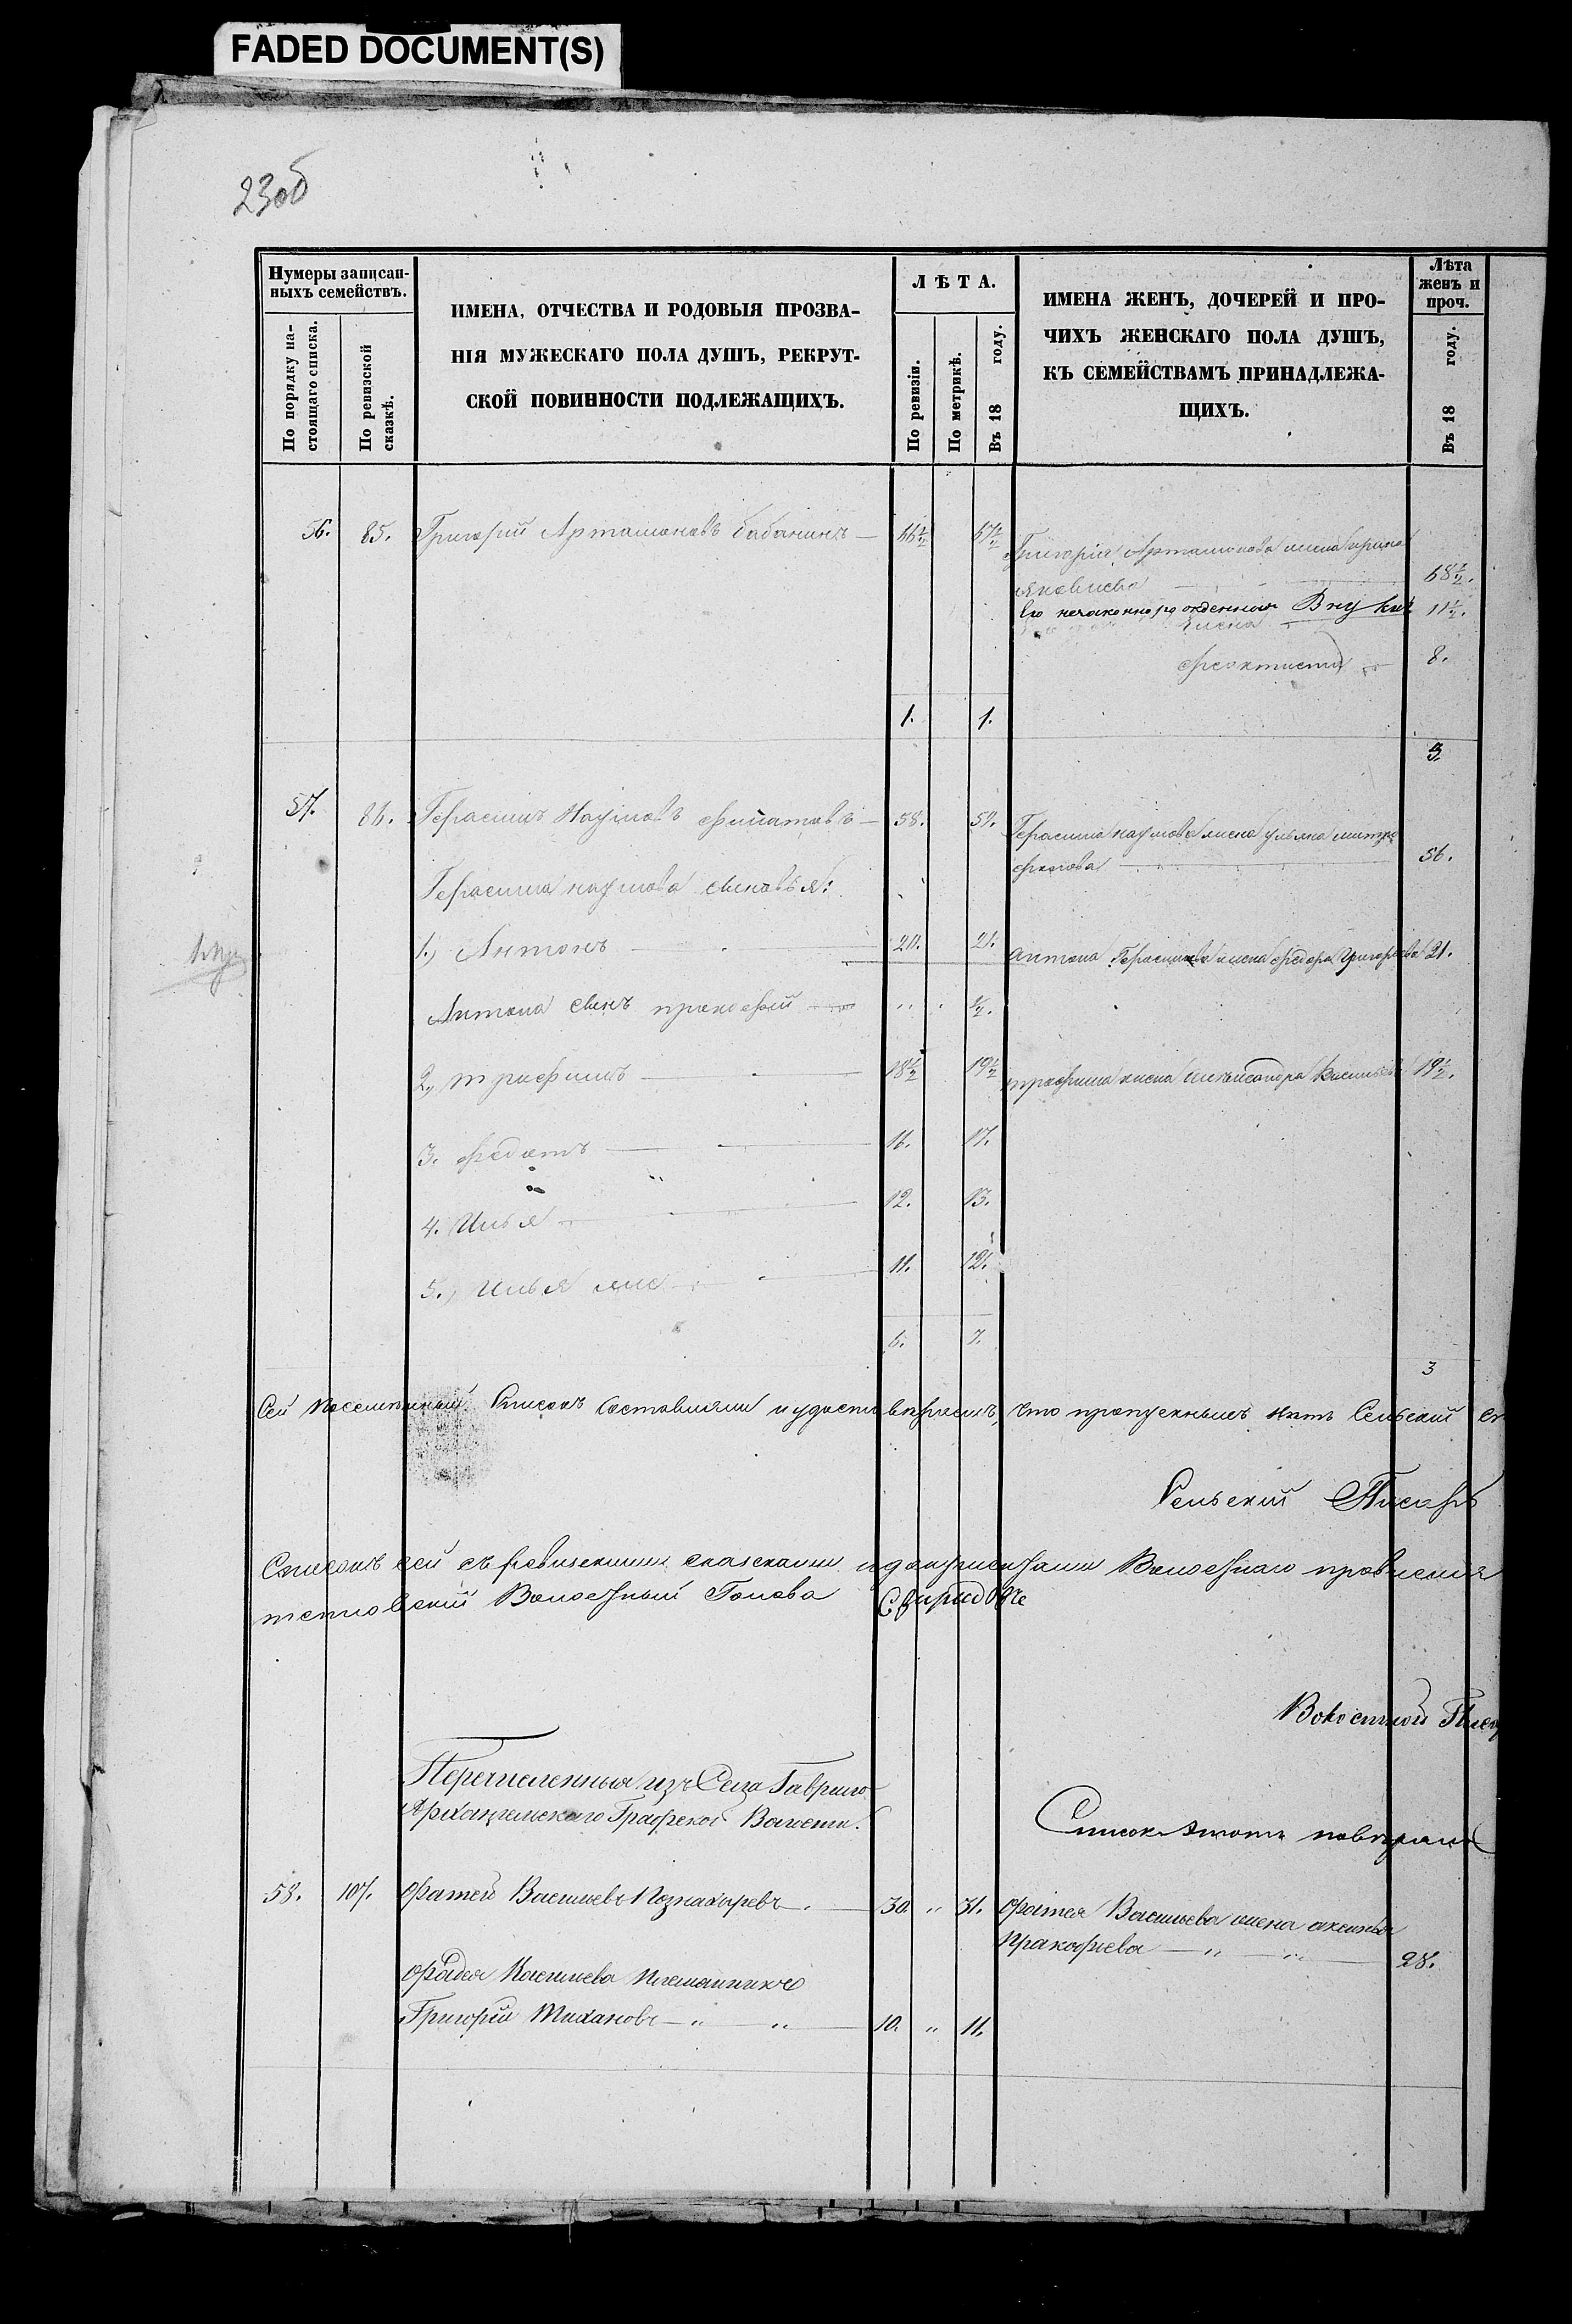 FADED DOCUMENT(S)
23об
Нумеры записан-
ныхъ семействъ.
По порядку на-
стоящаго списка.
По ревизской
сказкѣ.
ИМЕНА, ОТЧЕСТВА И РОДОВЫЯ ПРОЗВА-
НІЯ МУЖЕСКАГО ПОЛА ДУШЪ, РЕКРУТ-
СКОЙ ПОВИННОСТИ ПОДЛЕЖАЩИХЪ.
ЛѢТА.
По ревизіи.
По метрикѣ.
Въ 18 году.
ИМЕНА ЖЕНЪ, ДОЧЕРЕЙ И ПРО-
ЧИХЪ ЖЕНСКАГО ПОЛА ДУШЪ,
КЪ СЕМЕЙСТВАМЪ ПРИНАДЛЕЖА-
ЩИХЪ.
Лѣта
женъ и
проч.
Въ 18 году.
56. 85. Григорий Артамоновъ Бабанинъ — 66½ 67½
Григорія Артамонова жена Ирина
Яковлева 68½.
Его незаконнорожденная Внучка 11½.
Елена
Феоктиста 8.
1. 1.
3.
57. 86. Герасимъ Наумовъ Филатовъ — 58. 59.
Герасима Наумова жена Ульяна Митро
фанова 56.
Герасима Наумова сыновья:
1., Антонъ 20. 21.
Антона Герасимова жена Федора Григорьева 21.
Антона сынъ Прокофий " ½.
2., Трофимъ 18½ 19½
Трофима жена Александра Васильева 19½.
3. Федотъ 16. 17.
4. Илья 12. 13.
5., Илья же 11. 12.
6. 7.
3
Сей посемейный Списокъ составляли и удостовѣряемъ, что пропускныхъ нѣтъ Сельский
Сельский Писарь
Списокъ сей съ ревизскими сказками и документами Волостнаго правления
Волостный Голова Свиридовъ
Волостной Писар
Перечисленныя изъ Села Гаврило
Архангельскаго Графской Волости.
Списокъ этотъ повѣрялъ
58. 107. Фатей Васильевъ Познахаревъ 30. " 31.
Фатея Васильева жена Аксинья
Пракофиева — " — " 28.
Фадея Васильева племянникъ
Григорій Тихановъ — " " 10. " 11.